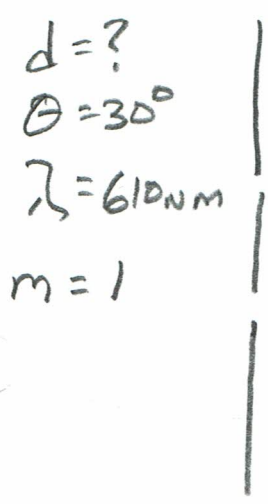 d = ?
θ = 30°
λ = 610NM
m = 1